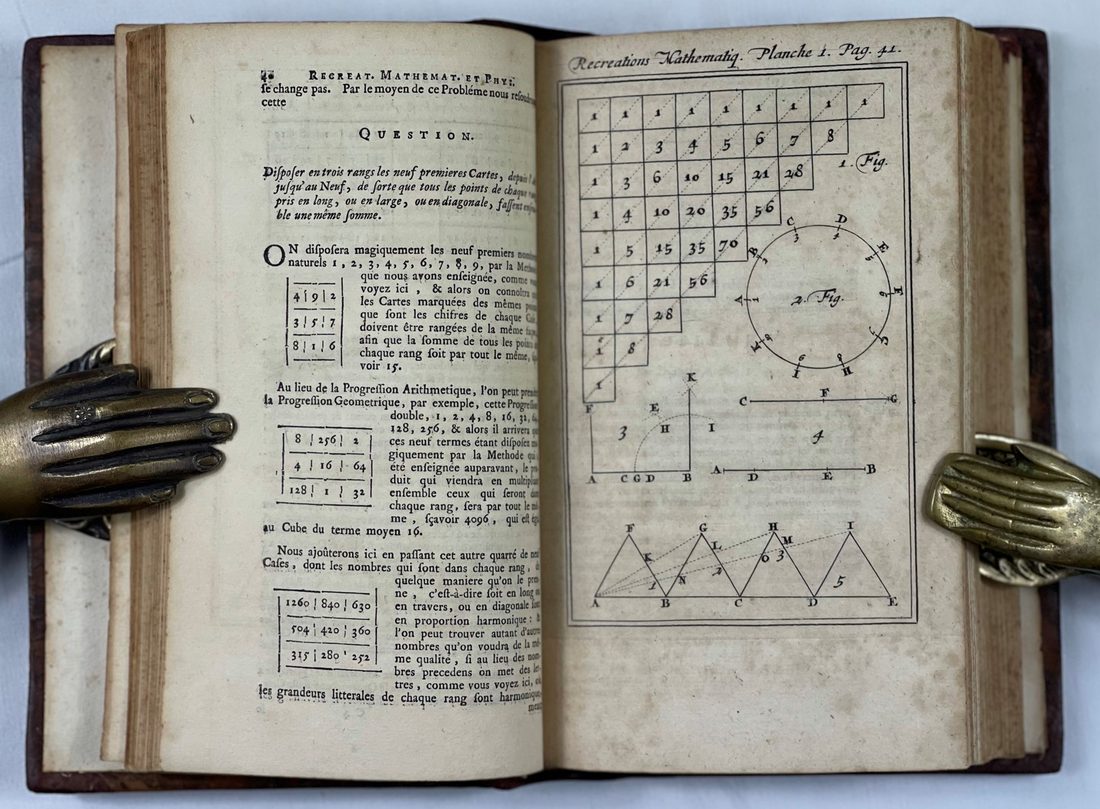 40 RECREAT. MATHEMAT. ET PHYS.
ſe change pas. Par le moyen de ce Probléme nous
cette
QUESTION.
Diſpoſer en trois rangs les neuf premieres Cartes, depuis
juſqu'au Neuf, de ſorte que tous les points de chaque
pris en long, ou en large, ou en diagonale, faſſent
ble une même ſomme.
ON diſpoſera magiquement les neuf premiers
naturels 1, 2, 3, 4, 5, 6, 7, 8, 9, par la
que nous avons enſeignée, comme
voyez ici, & alors on
4 | 9 | 2
les Cartes marquées des mêmes
que ſont les chifres de chaque
3 | 5 | 7
doivent être rangées de la même
afin que la ſomme de tous les
8 | 1 | 6
chaque rang ſoit par tout le même,
voir 15.
Au lieu de la Progreſſion Arithmetique, l'on peut
la Progreſſion Geometrique, par exemple, cette
double, 1, 2, 4, 8, 16, 32,
128, 256, & alors il arrivera
8 | 256 | 2
ces neuf termes étant diſpoſez
giquement par la Methode qui
4 | 16 | 64
été enſeignée auparavant, le
duit qui viendra en
128 | 1 | 32
enſemble ceux qui ſeront
chaque rang, ſera par tout le
me, ſçavoir 4096, qui eſt
au Cube du terme moyen 16.
Nous ajoûterons ici en paſſant cet autre quarré de
Caſes, dont les nombres qui ſont dans chaque rang,
quelque maniere qu'on le
ne, c'eſt-à-dire ſoit en long
1260 | 840 | 630
en travers, ou en diagonale
en proportion harmonique :
504 | 420 | 360
l'on peut trouver autant
nombres qu'on voudra de la
315 | 280 | 252
me qualité, ſi au lieu des
bres precedens on met des
tres, comme vous voyez ici,
les grandeurs litterales de chaque rang ſont
Recreations Mathematiq. Planche 1. Pag. 41.
1 1 1 1 1 1 1 1 1
1 2 3 4 5 6 7 8
1. Fig.
1 3 6 10 15 21 28
1 4 10 20 35 56
1 5 15 35 70
1 6 21 56
1 7 28
1 8
1
C D
B 3 4 E
A 1 2. Fig. F
K G
I H
F K
E
3 H I
A C G D B
C F G
4
A D E B
F G H I
K L M
1 N 2 O 3 5
A B C D E